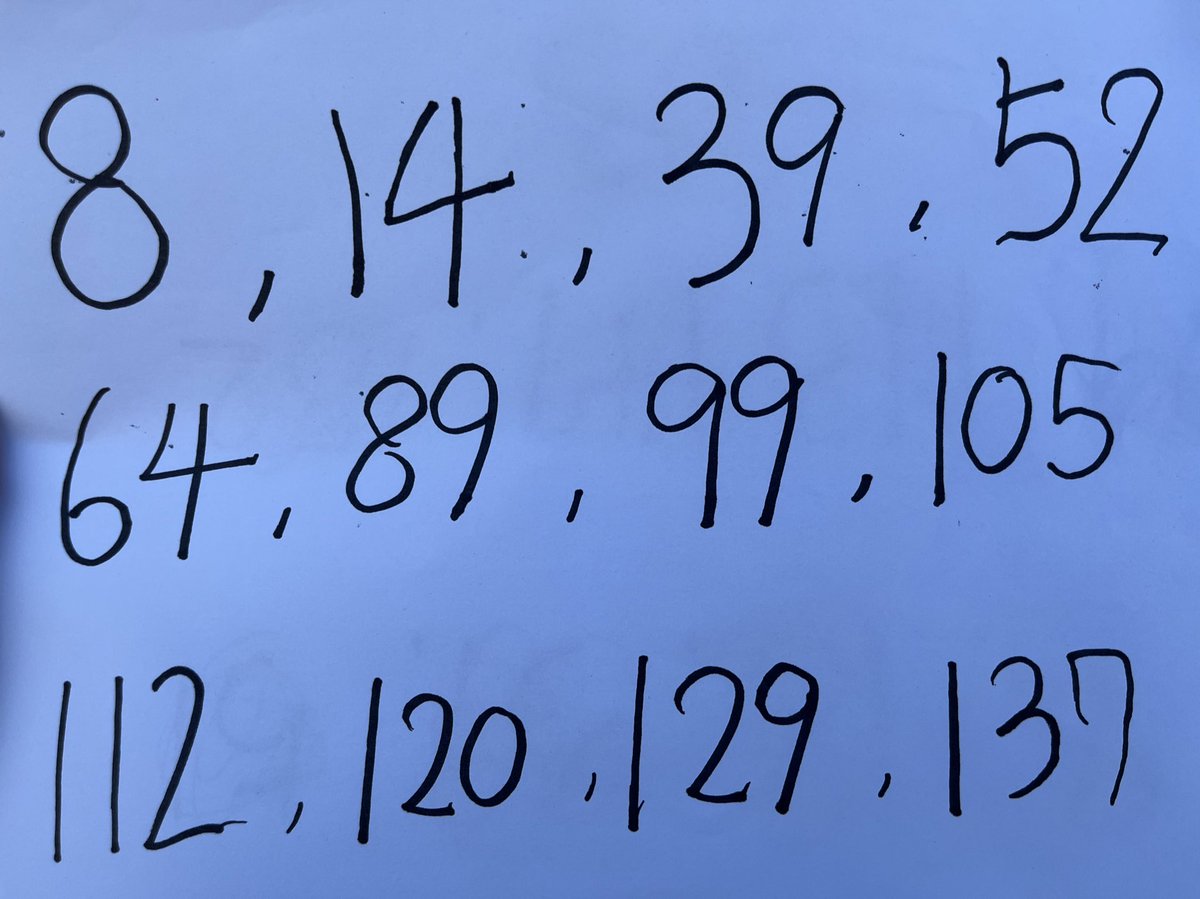 8, 14, 39, 52
64, 89, 99, 105
112, 120, 129, 137